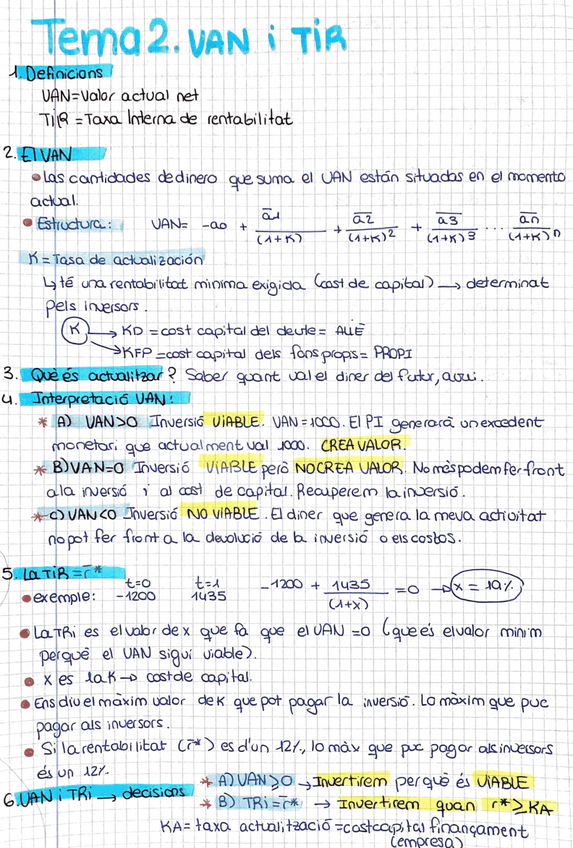 Tema 2. VAN i TiR
1. Definicions
VAN=Valor actual net
TiR = Taxa Interna de rentabilitat
2. El VAN
Las cantidades de dinero que suma el VAN están situadas en el momento
actual.
Estructura: VAN= -a0 + a1/(1+K) + a2/(1+K)² + a3/(1+K)³ ... an/(1+K)n
K = Tasa de actualización
↳ té una rentabilitat minima exigida (cost de capital) → determinat
pels inversors.
K → KD = cost capital del deute = ALIÈ
→ KFP = cost capital dels fons props = PROPI
3. Què és actualitzar? Saber quant val el diner del futur, avui.
4. Interpretació VAN:
* A) VAN>0 Inversió ViABLE. VAN=1000. El PI generarà un excedent
monetari, que actualment val 1000. CREA VALOR.
* B) VAN=0 Inversió ViABLE però NO CREA VALOR. Només podem fer front
a la inversió i al cost de capital. Recuperem la inversió.
* C) VAN<0 Inversió NO ViABLE. El diner que genera la meva activitat
no pot fer front a la devolució de la inversió o els costos.
5. La TiR = r*
t=0 t=1
exemple: -1200 1435 -1200 + 1435/(1+x) = 0 → x = 19%
La TRi es el valor de x que fa que el VAN =0 (que és el valor minim
perquè el VAN sigui viable).
x es la K → cost de capital.
Ens diu el màxim valor de K que pot pagar la inversió. Lo màxim que puc
pagar als inversors.
Si la rentabilitat (r*) es d'un 12%, lo màx que puc pagar als inversors
és un 12%.
6. VAN i TRi → decisions * A) VAN≥0 → Invertirem perquè és ViABLE
* B) TRi = r* → Invertirem quan r* ≥ KA
KA = taxa actualització = cost capital finançament
(empresa)